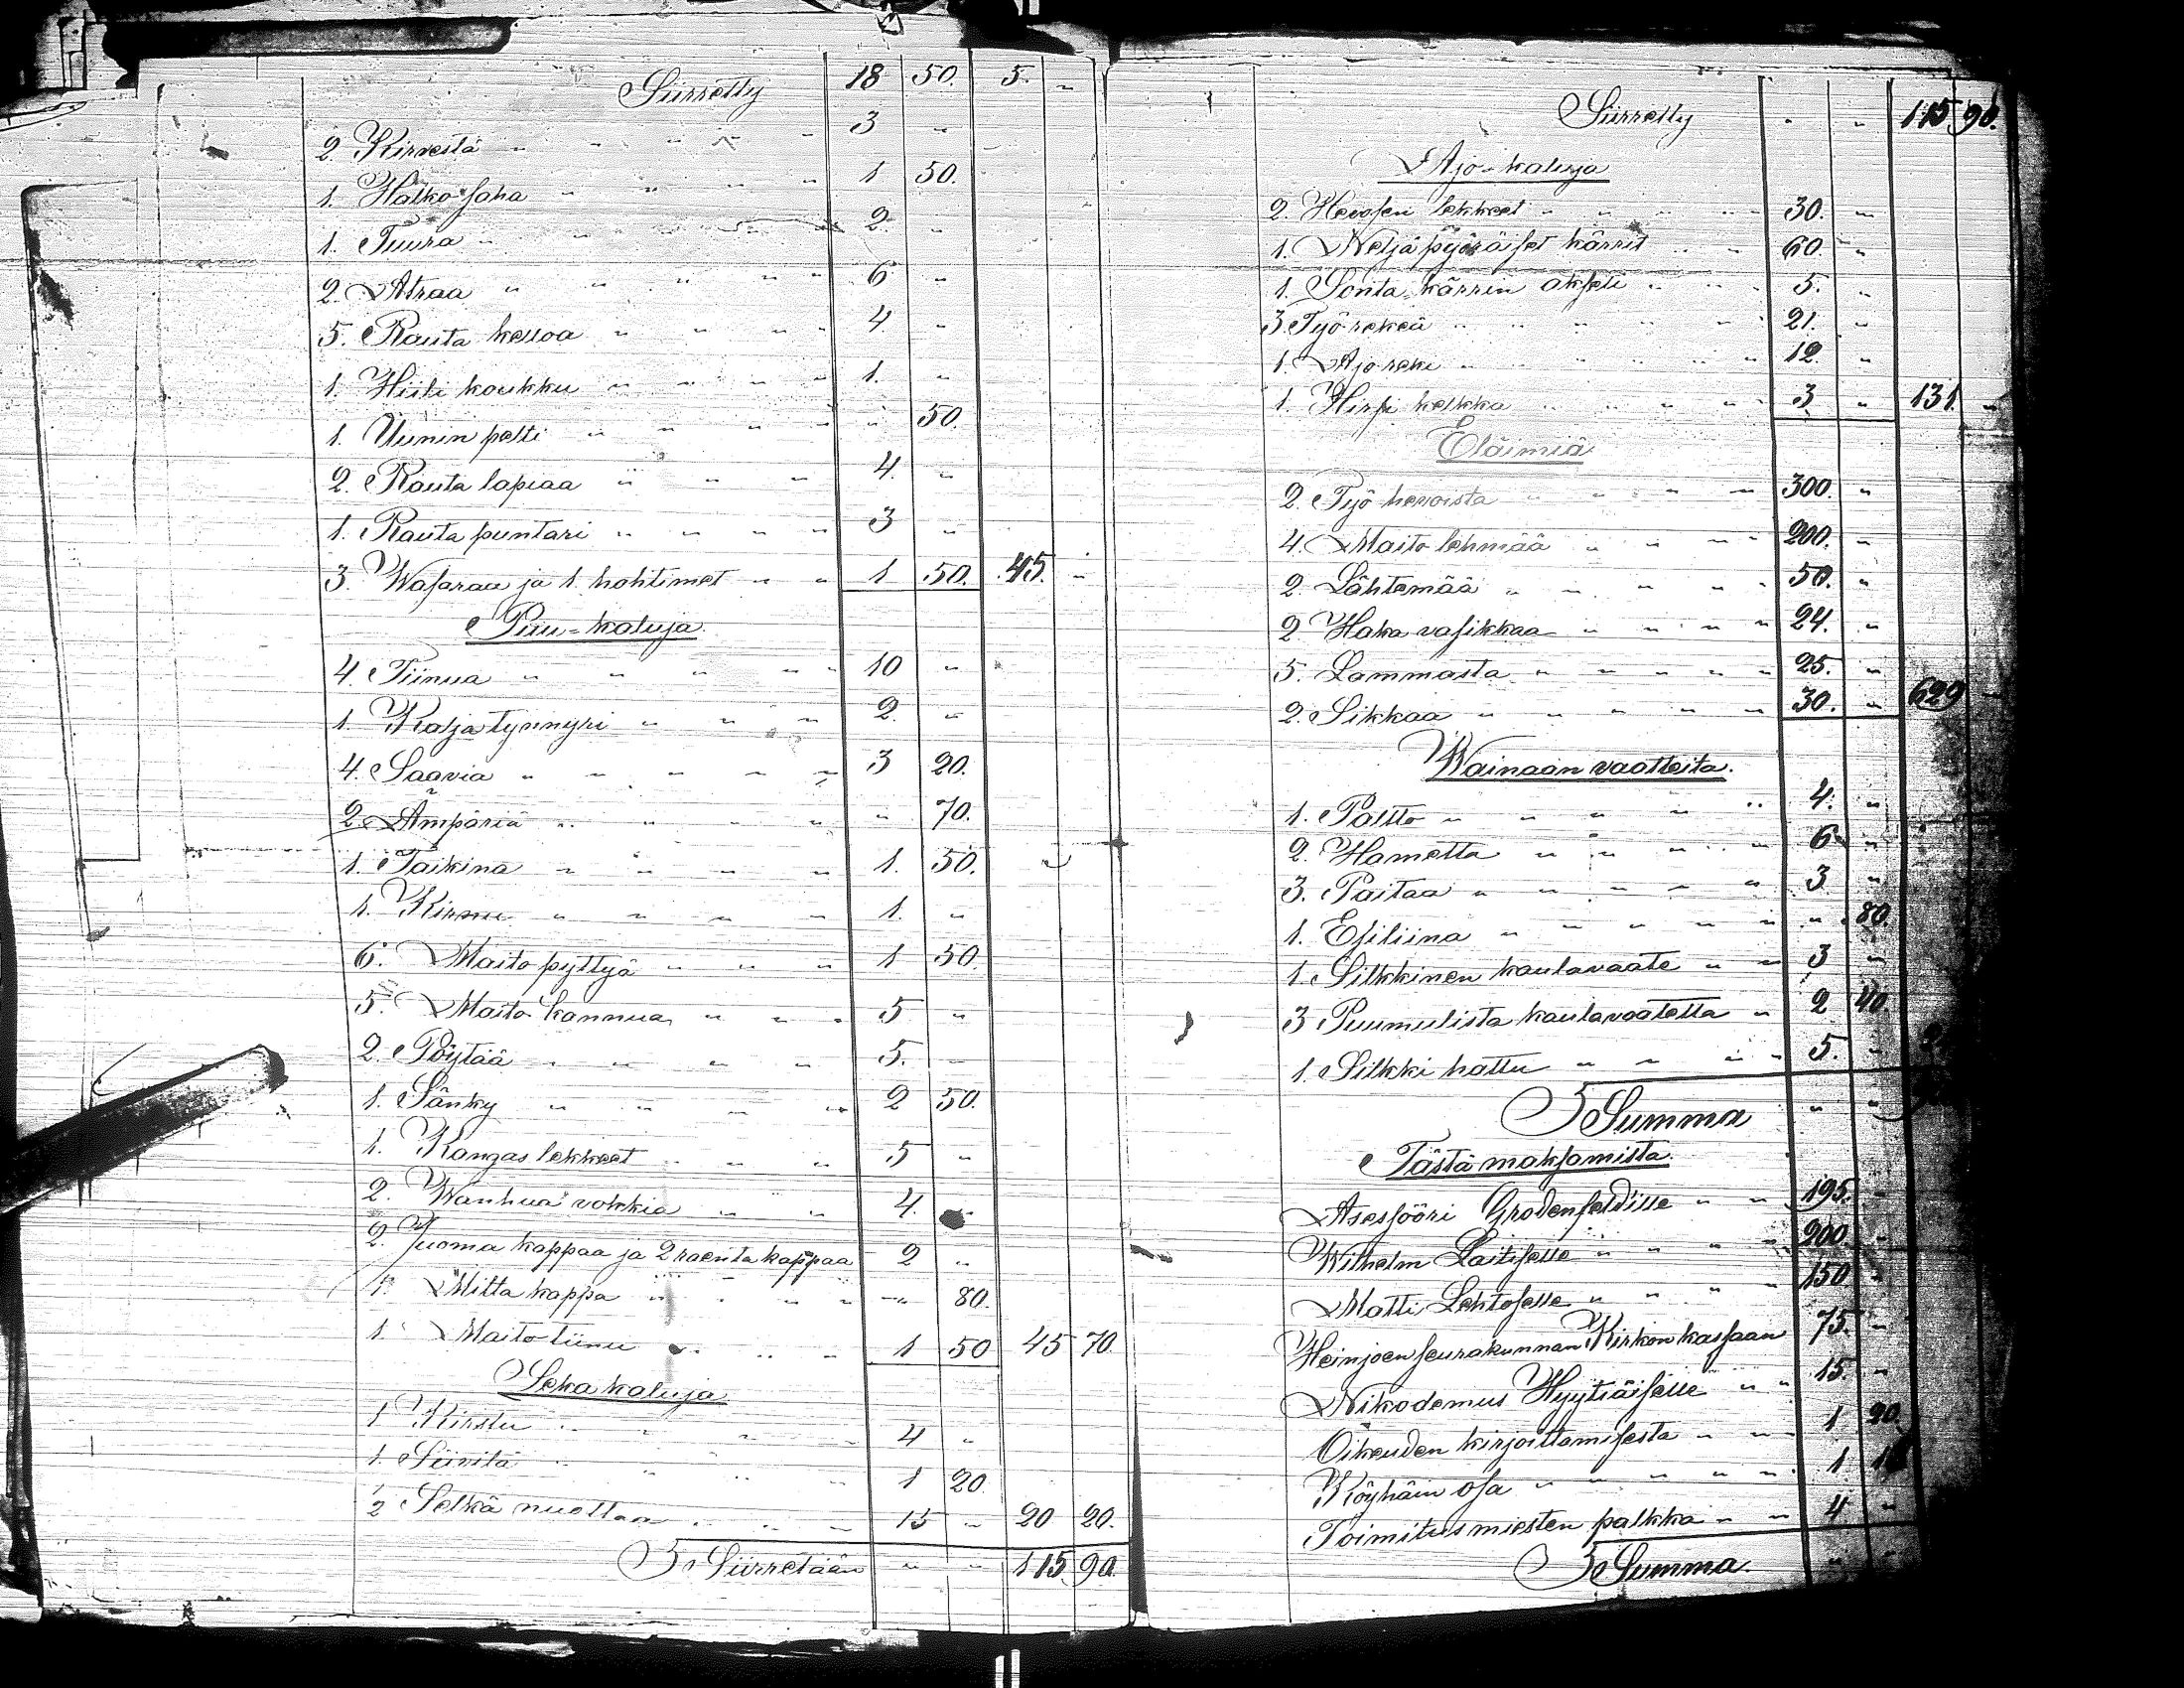 Siirretty 18 50. 5. "
2. Kirvestä " " " " 3 "
1. Halko saha " " " " 1 50.
1. Tuura " " " " 2. "
2. Atraa " " " " 6 "
5. Rauta kelloa " " " " 4. "
1. Hiili koukku " " " " 1. "
1. Uunin pelti " " " " " 50.
2. Rauta lapiaa " " " 4. "
1. Rauta puntari " " " " 3 "
3. Wasaraa ja 1. hohtimet " " 1 50. 45. "
Puu-kaluja.
4. Tiinua " " " " " 10 "
1. Kalja tynnyri " " " 2. "
4. Saavia " " " " " 3 20.
2. Ämpäriä " " " " " 70.
1. Taikina " " " " 1. 50.
1. Kirnu " " " " 1. "
6. Maito pyttyä " " " 1 50.
5. Maito kannua " " " 5 "
2. Pöytää " " " " 5. "
1. Sänky " " " " 2 50.
1. Kangas lekkeet " " " 5 "
2. Wanhua vokkia " " 4. "
2. Juoma kappaa ja 2 raenta kappaa 2 "
1. Mitta kappa " " " " " 80.
1. Maito-tiinu " " " 1 50 45 70.
Seka kaluja
1 Kirstu " " " " 4 "
1. Siivitä " " " 1 20
2 Selkä nuottaa " " " 15 " 20 20.
Siirretään " " 115 90
Siirretty " " 115 90.
Ajo-kaluja
2. Hevosen lekkeet " " " " 30. "
1. Neljäpyöräiset kärrit " " 60. "
1. Sonta-kärrin akseli " " " 5. "
3 Työ-rekeä " " " " " 21. "
1. Ajo reki " " " " " 12. "
1. Hirsi kelkka " " " " 3 " 131. "
Eläimiä
2. Työ hevoista " " " " 300. "
4. Maito lehmää " " " " 200. "
2. Lähtemää " " " " " 50. "
2 Haka vasikkaa " " " " 24. "
5. Lammasta " " " " " 25. "
2. Sikkaa " " " " " 30. " 629 "
Wainaan vaatteita.
1. Paltto " " " " " 4. "
2. Hametta " " " " " 6 "
3. Paitaa " " " " " 3 "
1. Esiliina " " " " " " 80.
1. Silkkinen kaulavaate " " 3 "
3 Puumulista kaulavaatetta " 2 40.
1. Silkki hattu " " " " 5. "
Summa " "
Tästä maksamista.
Asessööri Grodenfeldille " " 195. "
Wilhelm Laitiselle " " " " 200. "
Matti Lehtoselle " " " " 150 "
Heinjoen seurakunnan Kirkon kassaan 75. "
Nikodemus Hyytiäiselle " " 15. "
Oikeuden kirjoittamisesta " " 1 20
Köyhäin osa " " " " " 1
Toimitus miesten palkka " " 4 "
Summa. " "